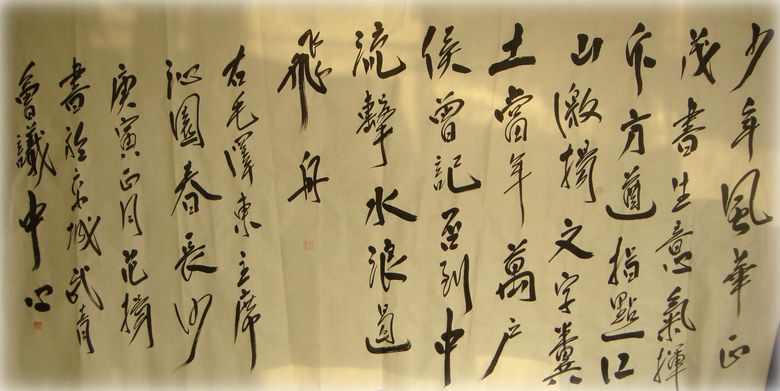 少年風華正
茂書生意氣揮
斥方遒指點江
山激揚文字糞
土當年萬户
侯曾記否到中
流擊水浪遏
飛舟
右毛澤東主席
沁園春長沙
庚寅正月范揚
書於京城武青
會議中心